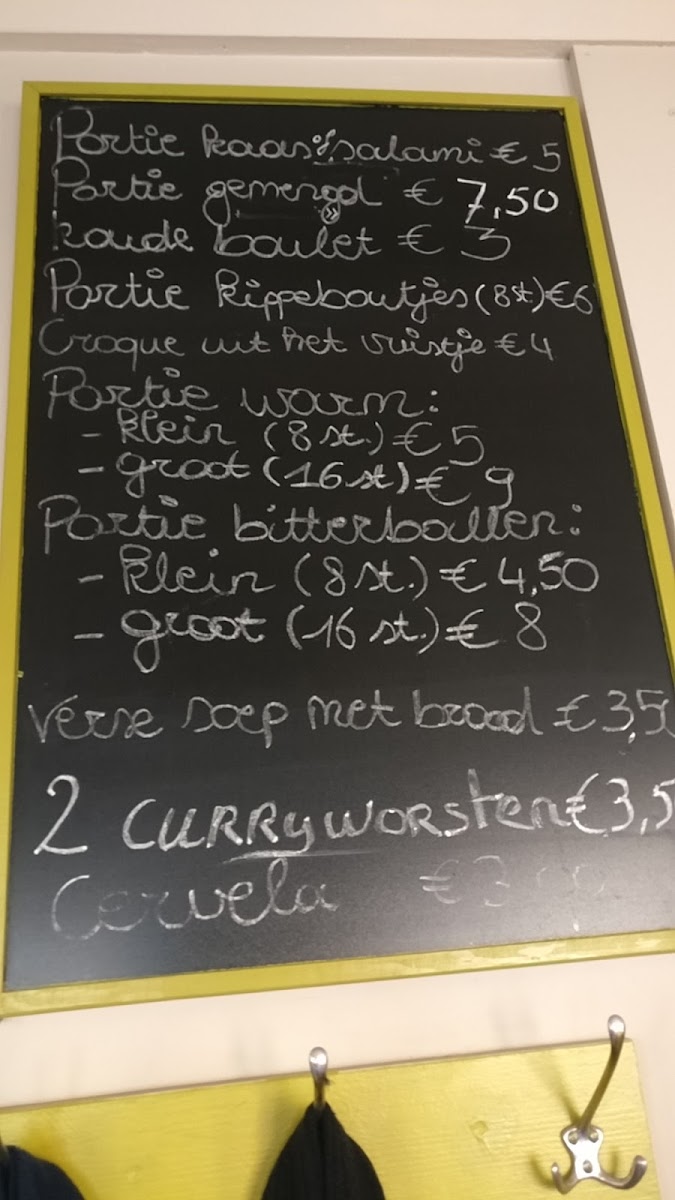 Portie kaas of salami € 5
Portie gemengd € 7,50
koude boulet € 3
Portie kippeboutjes (8 st.) € 6
Croque uit het vuistje € 4
Portie warm:
- klein (8 st.) € 5
- groot (16 st) € 9
Portie bitterballen:
- klein (8 st.) € 4,50
- groot (16 st.) € 8
Verse soep met brood € 3,5
2 CURRYWORSTEN € 3,5
Cervela € 3